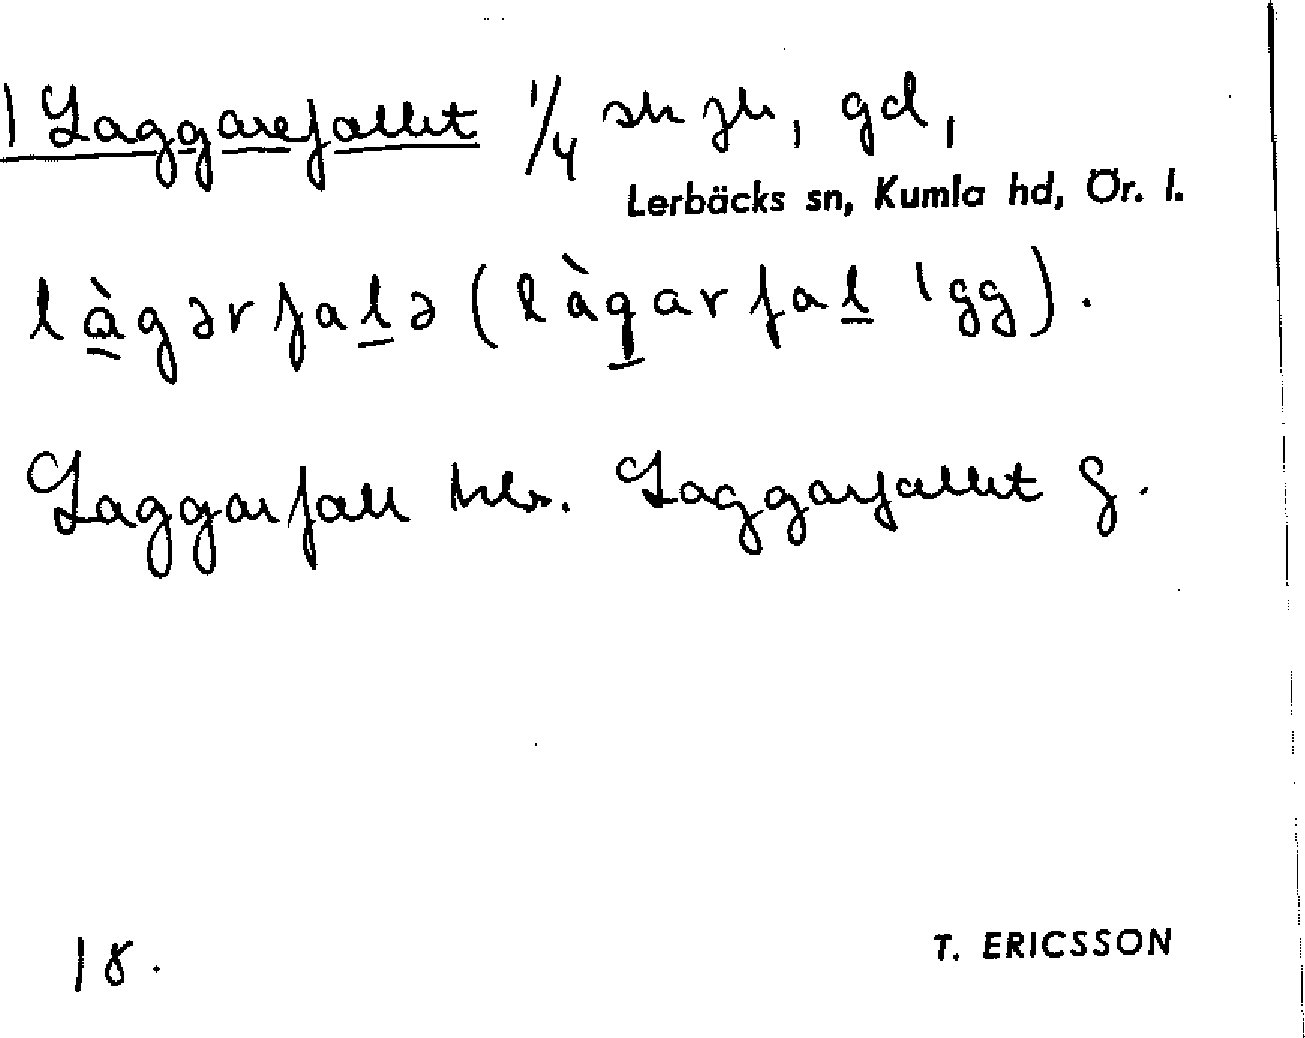 1 Laggarefallet 1/4 sk jh, gd,
Lerbäcks sn, Kumla hd, Ör. l.
là̱gərfaḻə (làg̱arfaḻ 'gg).
Laggarfall hbr. Laggarfallet G.
18.
T. ERICSSON